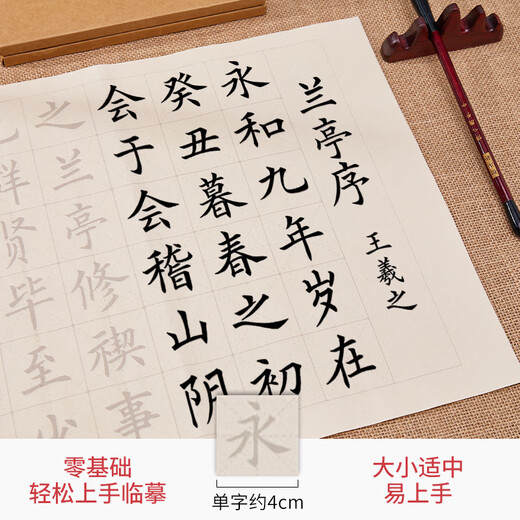 兰亭序
王羲之
永和九年岁在
癸丑暮春之初
会于会稽山阴
之兰亭修禊事
也群贤毕至少
零基础
轻松上手临摹
永
单字约4cm
大小适中
易上手